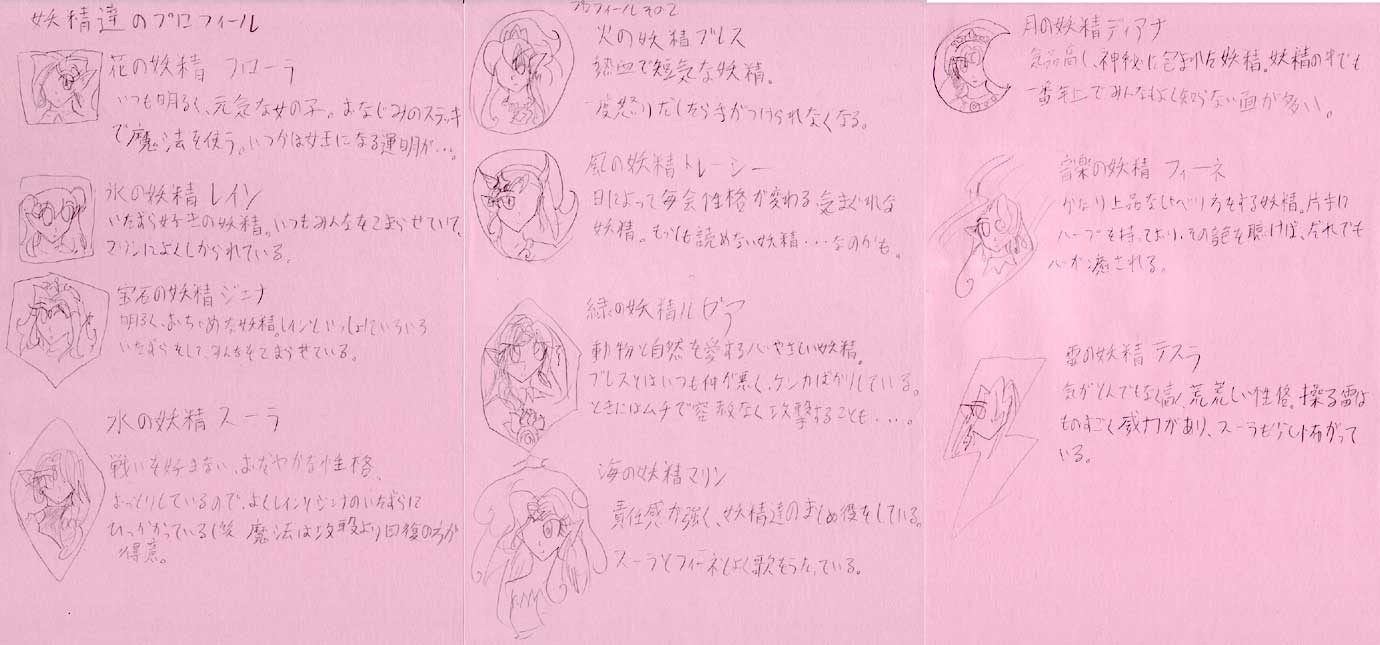 妖精達のプロフィール
花の妖精 フローラ
いつも明るく、元気な女の子。おなじみのステッキ
で魔法を使う。いつかは女王になる運明が…。
氷の妖精 レイン
いたずら好きの妖精。いつもみんなをこまらせていて、
マリンによくしかられている。
宝石の妖精ジェナ
明るく、おちゃめな妖精。レインといっしょにいろいろ
いたずらをして、みんなをこまらせている。
水の妖精 スーラ
戦いを好まない、おだやかな性格、
よくレインとジェナのいたずらに
ひっかかっている 魔法は攻撃より回復の方が
得意。
プロフィールその2
火の妖精ブレス
熱血で短気な妖精。
一度怒りだしたら手がつけられなくなる。
風の妖精トレーシー
日によって毎会性格が変わる気まぐれな
妖精。もっとも読めない妖精・・・なのかも。
緑の妖精ルピア
動物と自然を愛する心やさしい妖精。
ブレスとはいつも仲が悪く、ケンカばかりしている。
ときにはムチで容赦なく攻撃することも・・・・。
海の妖精マリン
責任感が強く、妖精達のまとめ役をしている。
スーラとフィーネとよく歌をうたっている。
月の妖精ディアナ
気品高く、神秘に包まれた妖精。妖精の中でも
一番年上でみんなもよく知らない面が多い。
音楽の妖精 フィーネ
かなり上品なしゃべり方をする妖精。片手に
ハープを持っており、その音色を聴けば、だれでも
心が癒される。
雷の妖精 テスラ
気がとんでもなく高く、荒荒しい性格。操る雷は
ものすごく威力があり、スーラも少し怖がって
いる。